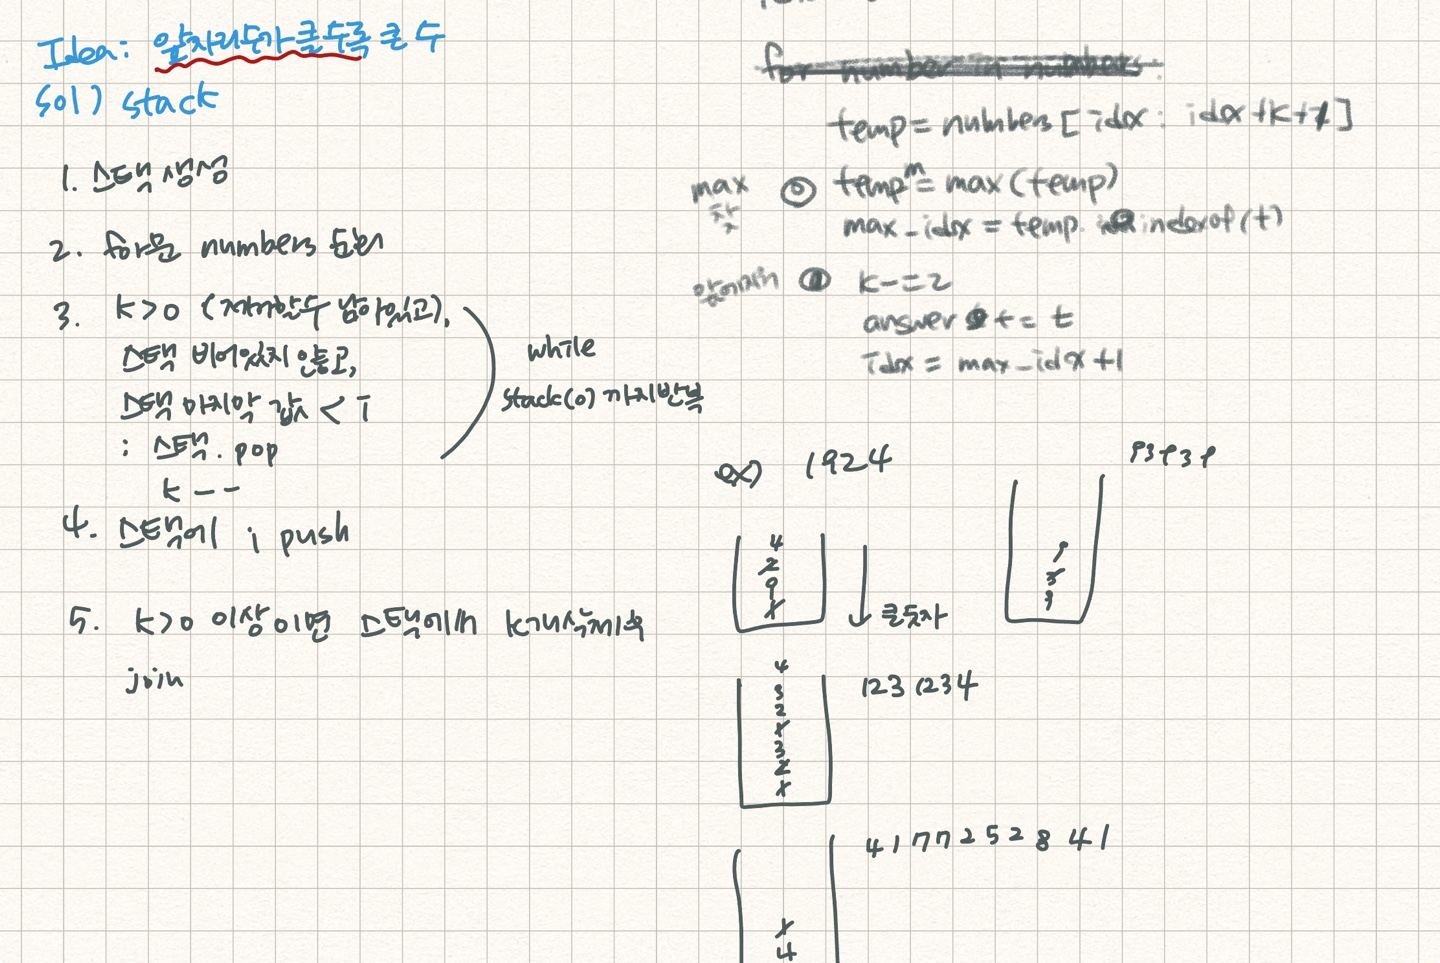 Idea: 앞자리수가 클수록 큰 수
sol) stack
1. 스택 생성
2. for문 numbers 순회
3. k>0 (제거할 수 남아있고),
스택 비어있지 않고,
스택 마지막 값 < i
: 스택.pop
k--
while
stack(0) 까지 반복
4. 스택에 i push
5. k>0 이상이면 스택에서 k개 삭제 후
join
for number in numbers:
temp = numbers [idx : idx+k+1]
max
찾
⓪ temp m = max(temp)
max_idx = temp. indexof(t)
앞에
① k-=2
answer += t
idx = max_idx+1
ex) 1924
4
2
9
1
큰숫자
9
3
9
4
3
2
1
3
2
1
1231234
4177252841
1
4